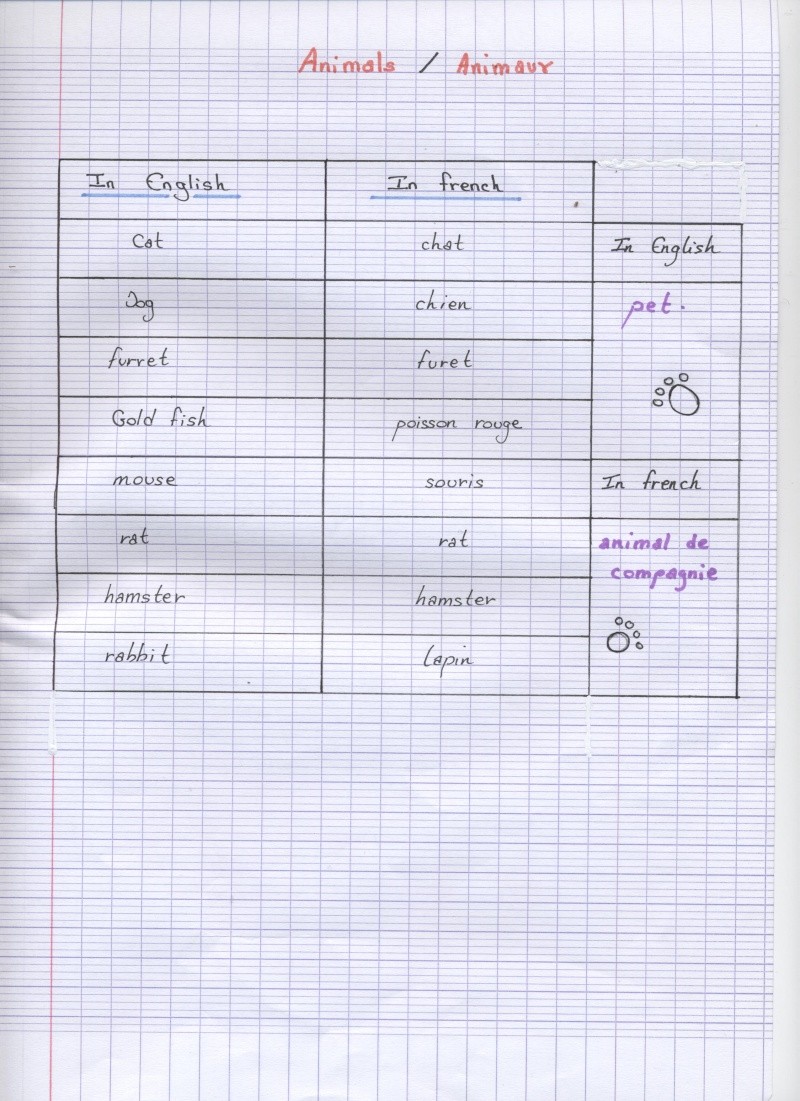 Animals / Animaux
In English In french
Cat chat In English
Dog chien pet.
furret furet
Gold fish poisson rouge
mouse souris In french
rat rat animal de
compagnie
hamster hamster
rabbit lapin